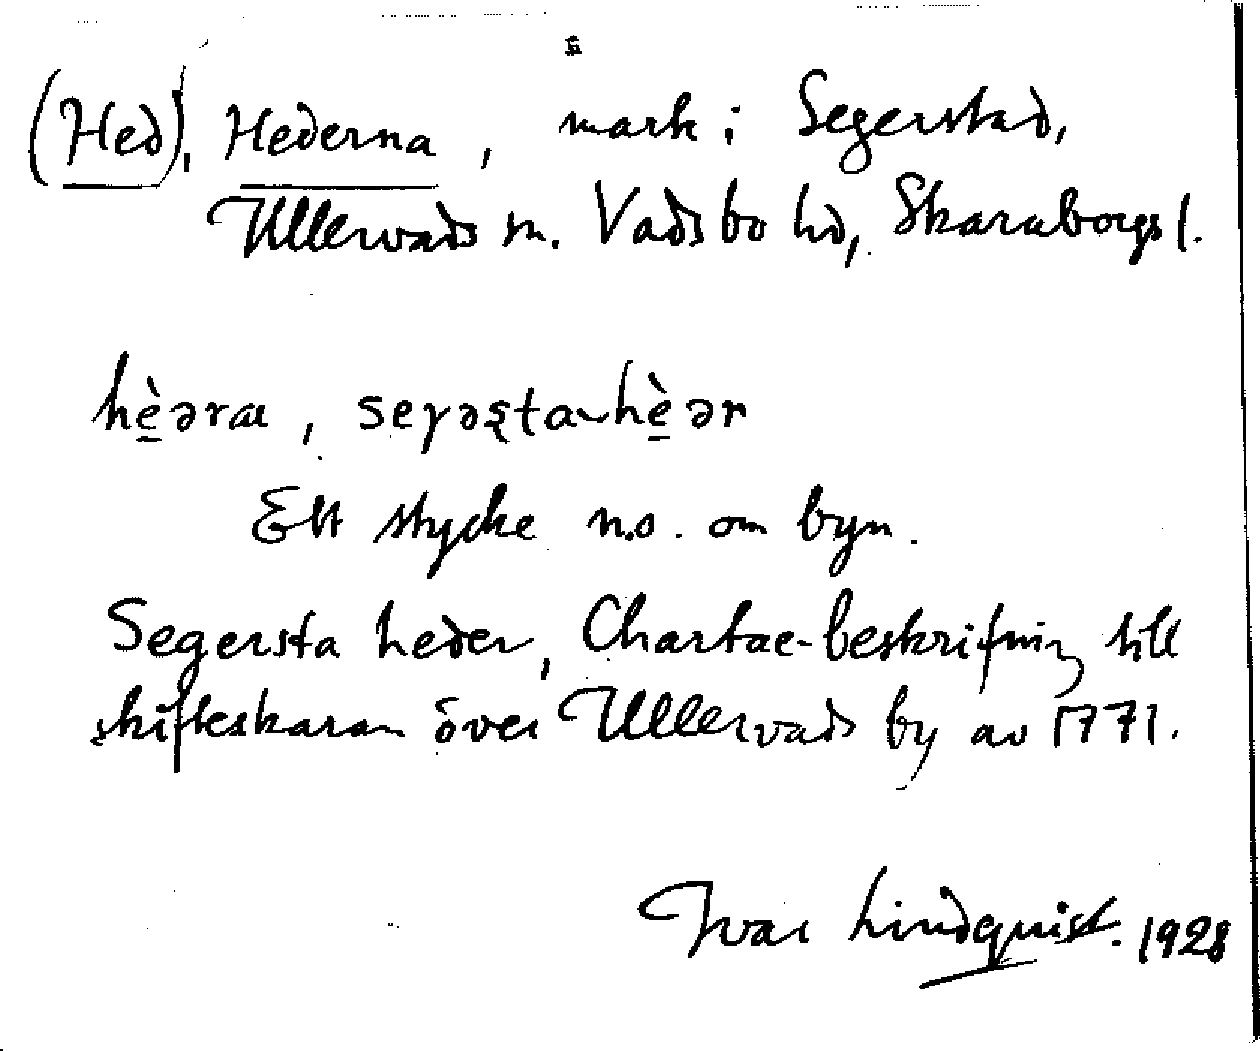 (Hed), Hederna, mark i Segerstad,
Ullervads sn. Vadsbo hd, Skaraborgs l.
hè̠əra, seɣəʂta hè̠ər
Ett stycke n.o. om byn.
Segersta heder, Chartae-beskrifning till
skifteskartan över Ullervads by av 1771.
Ivar Lindquist. 1928